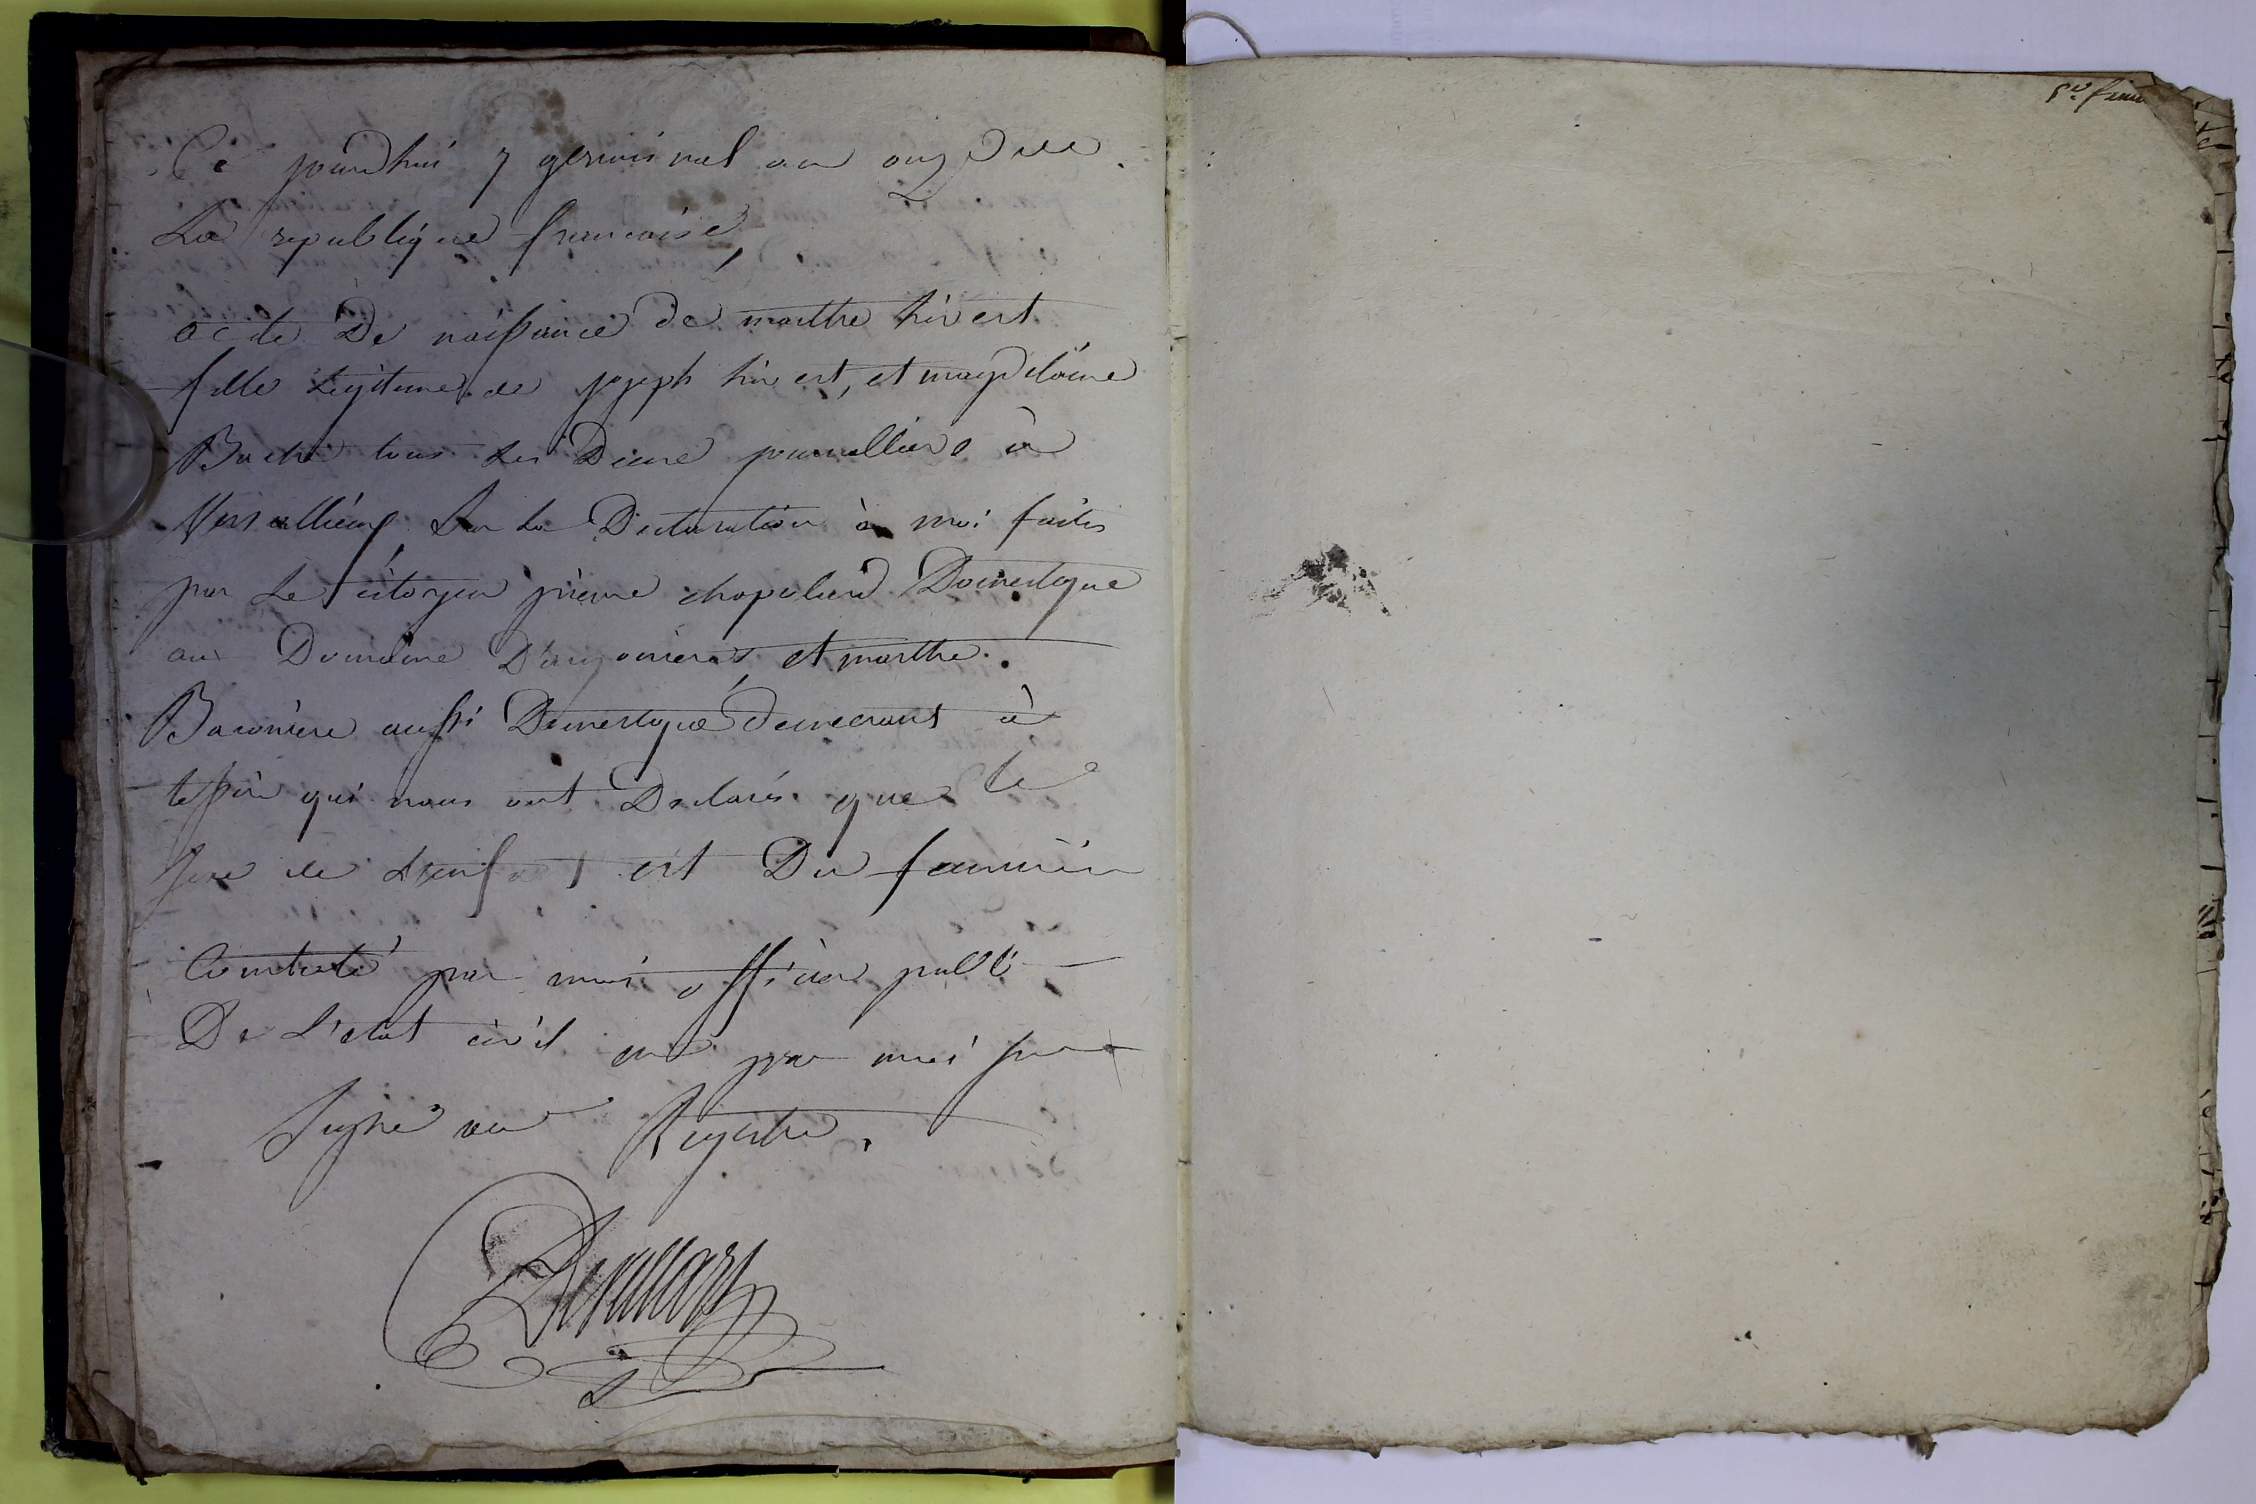 Ce jourdhui 7 germinal an onz De
La republique francaise,
acte De naissance de marthe hivert
fille Legitime de joseph hivert, et magdelaine
Buche tous les Deux journalliers à
Sur la Declaration à moi faites
par Le citoyen pierre chapelard Domestique
au Domaine et marthe
Baconiere aussi Domestique demeurant à
qui nous ont Declarés que le
sexe de Lenfant est Du feminin
Constaté par moi officier public
De L'etat civil par moi
Signé au Registre.